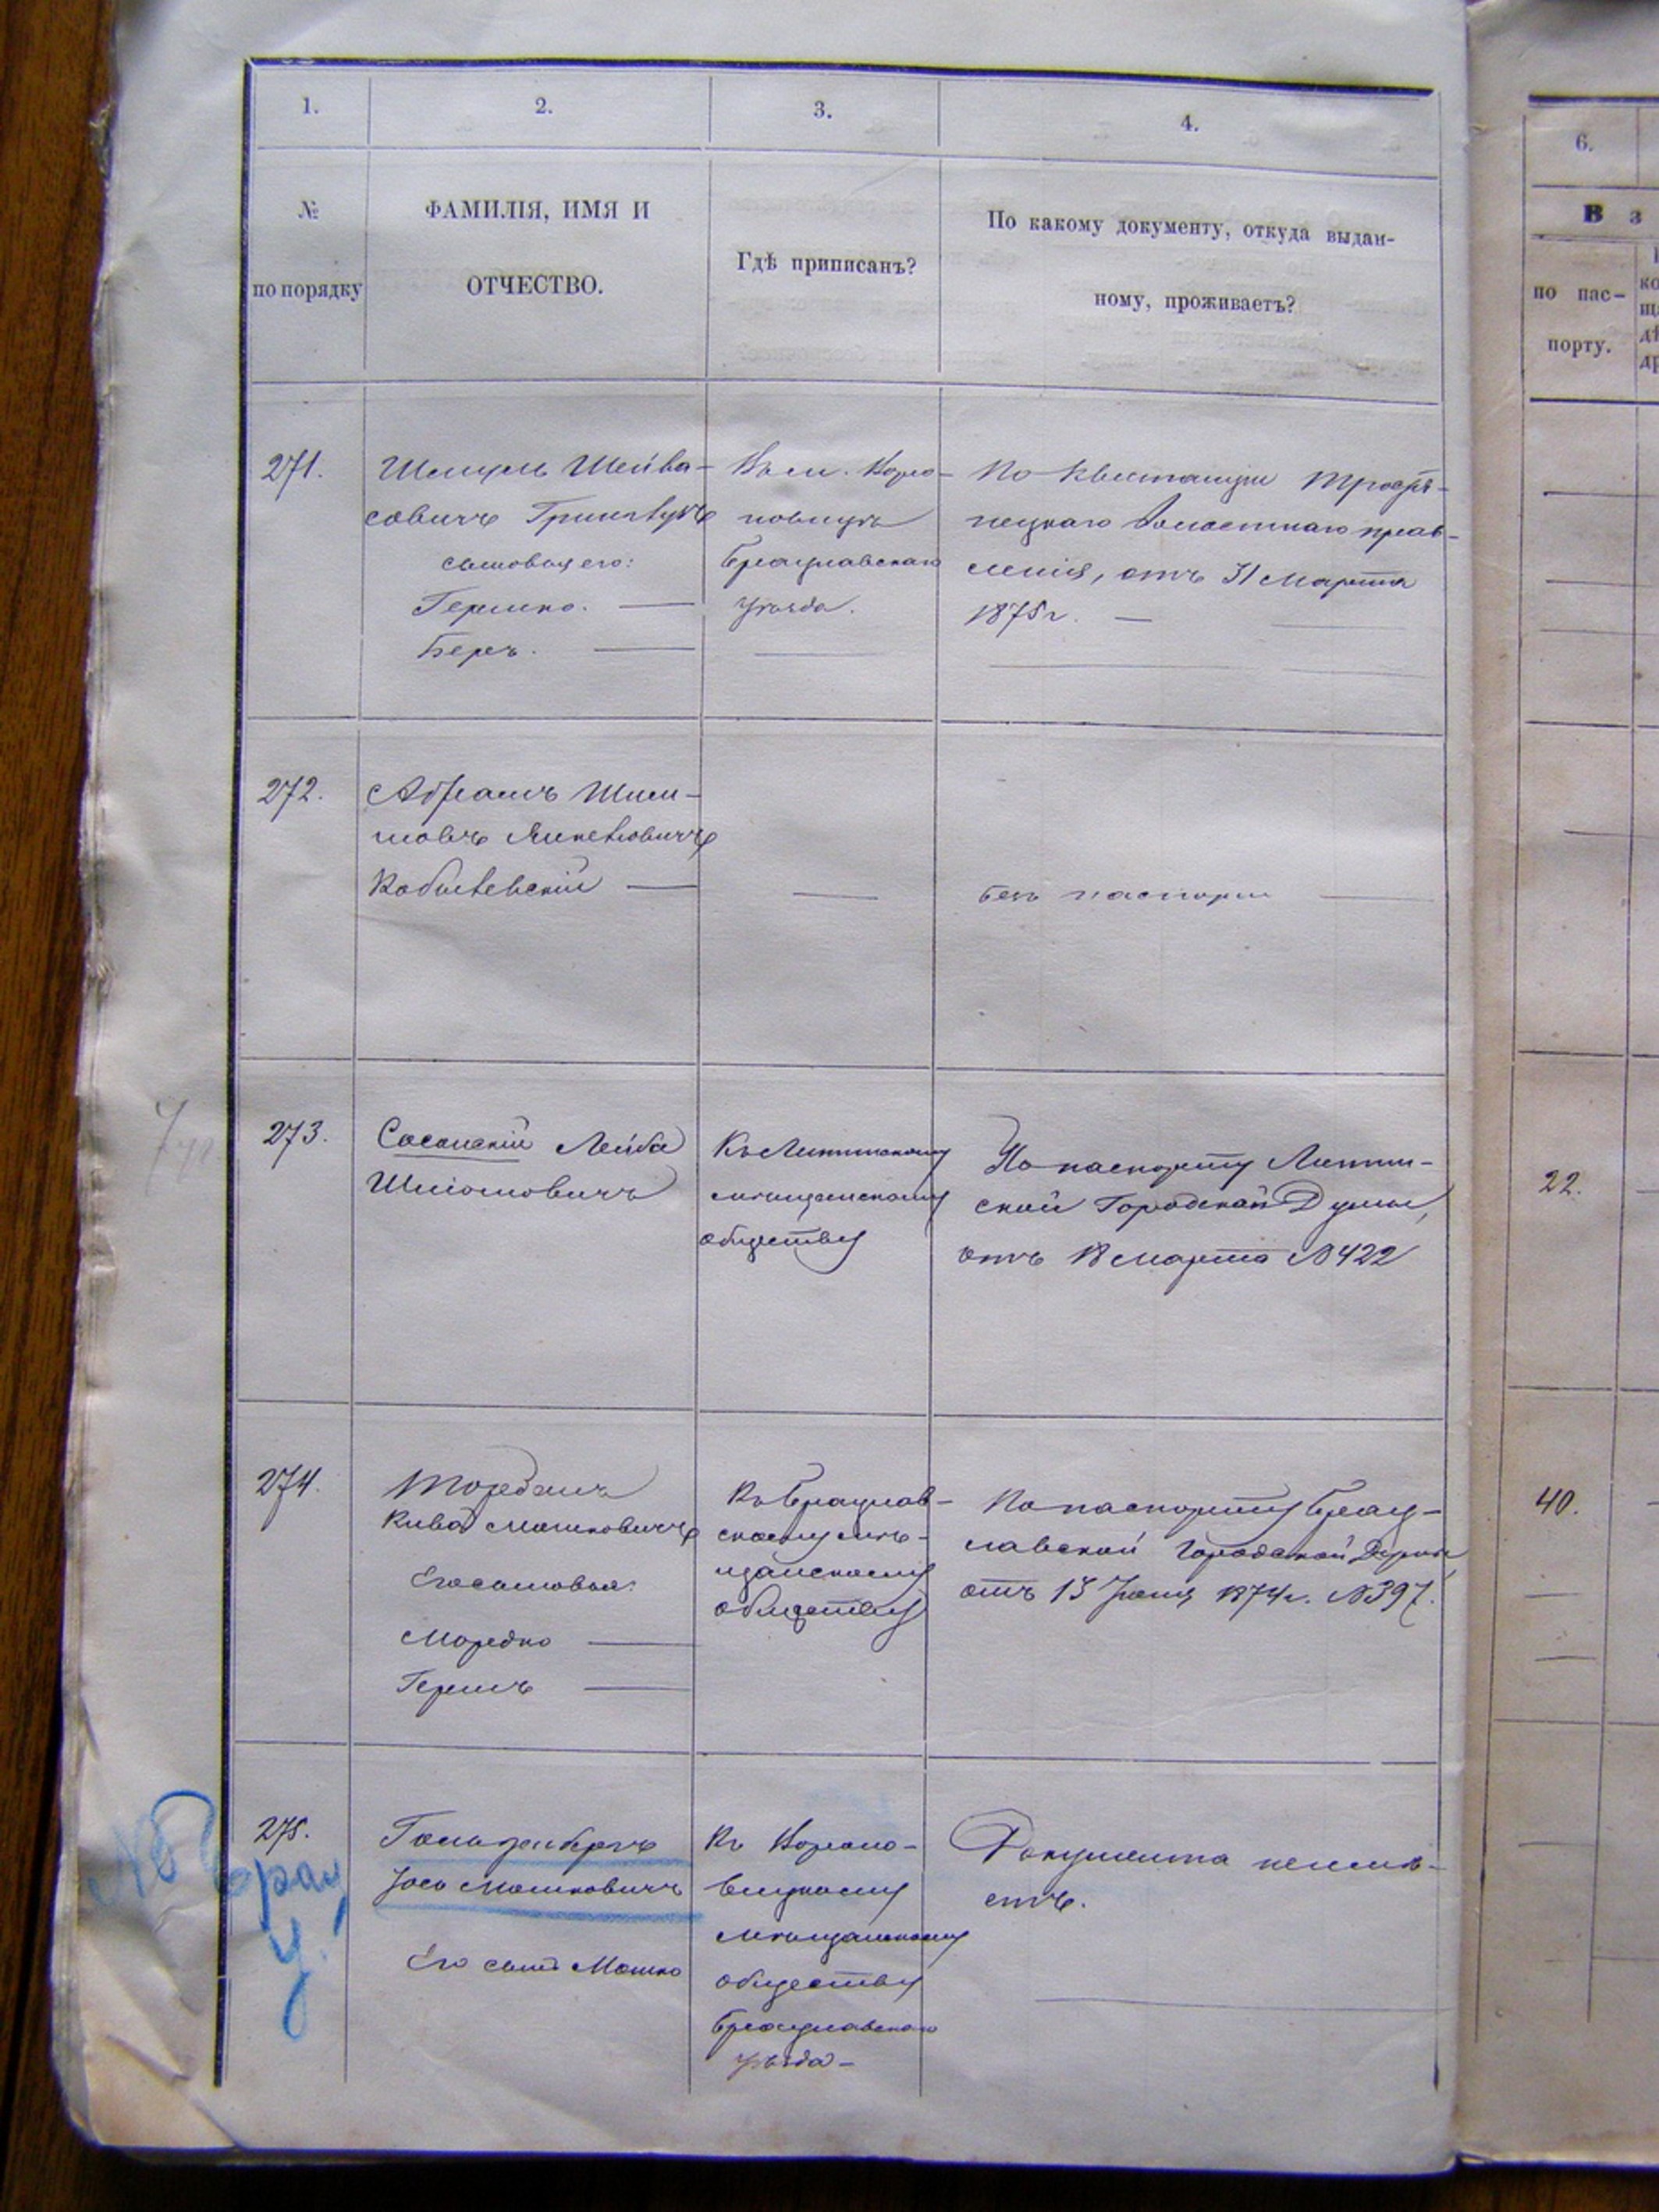 1.
2.
3.
4.
№
по порядку
ФАМИЛІЯ, ИМЯ И
ОТЧЕСТВО.
Гдѣ приписанъ?
По какому документу, откуда выдан-
ному, проживаетъ?
271.
Шмуль Шейва-
совичъ
сыновья его:
Гершко.
Беръ.
Въ м.
Брацлавскаго
уѣзда.
По Квитанціи Тростя-
нецкаго Волостнаго прав-
ленія, отъ 31 Марта
1875 г.
272.
Абрамъ Шлм-
Кобылевскій
безъ паспорта
273.
Сосонскій Лейба
Шліомовичъ
Къ Литинскому
мѣщанскому
обществу
По паспорту Литин-
ской Городской Думы,
отъ 18 Марта №422
274.
Кива Мошковичъ
Его сыновья:
Мордко
Гершъ
Къ Брацлав-
скому мѣ-
щанскому
обществу
По паспорту Брац-
лавской Городской Думы
отъ 13 1874 г. №397.
275.
Гольденбергъ
Іось Мошковичъ
Его сынъ Мошко
Къ
мѣщанскому
обществу
Брацлавскаго
уѣзда
Документа неимѣ-
етъ.
Брац
у!
6.
В з
по пас-
порту.
22.
40.